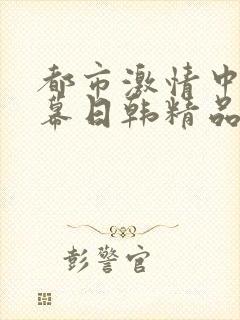 都市激情中
幕日韩精品
彭警官